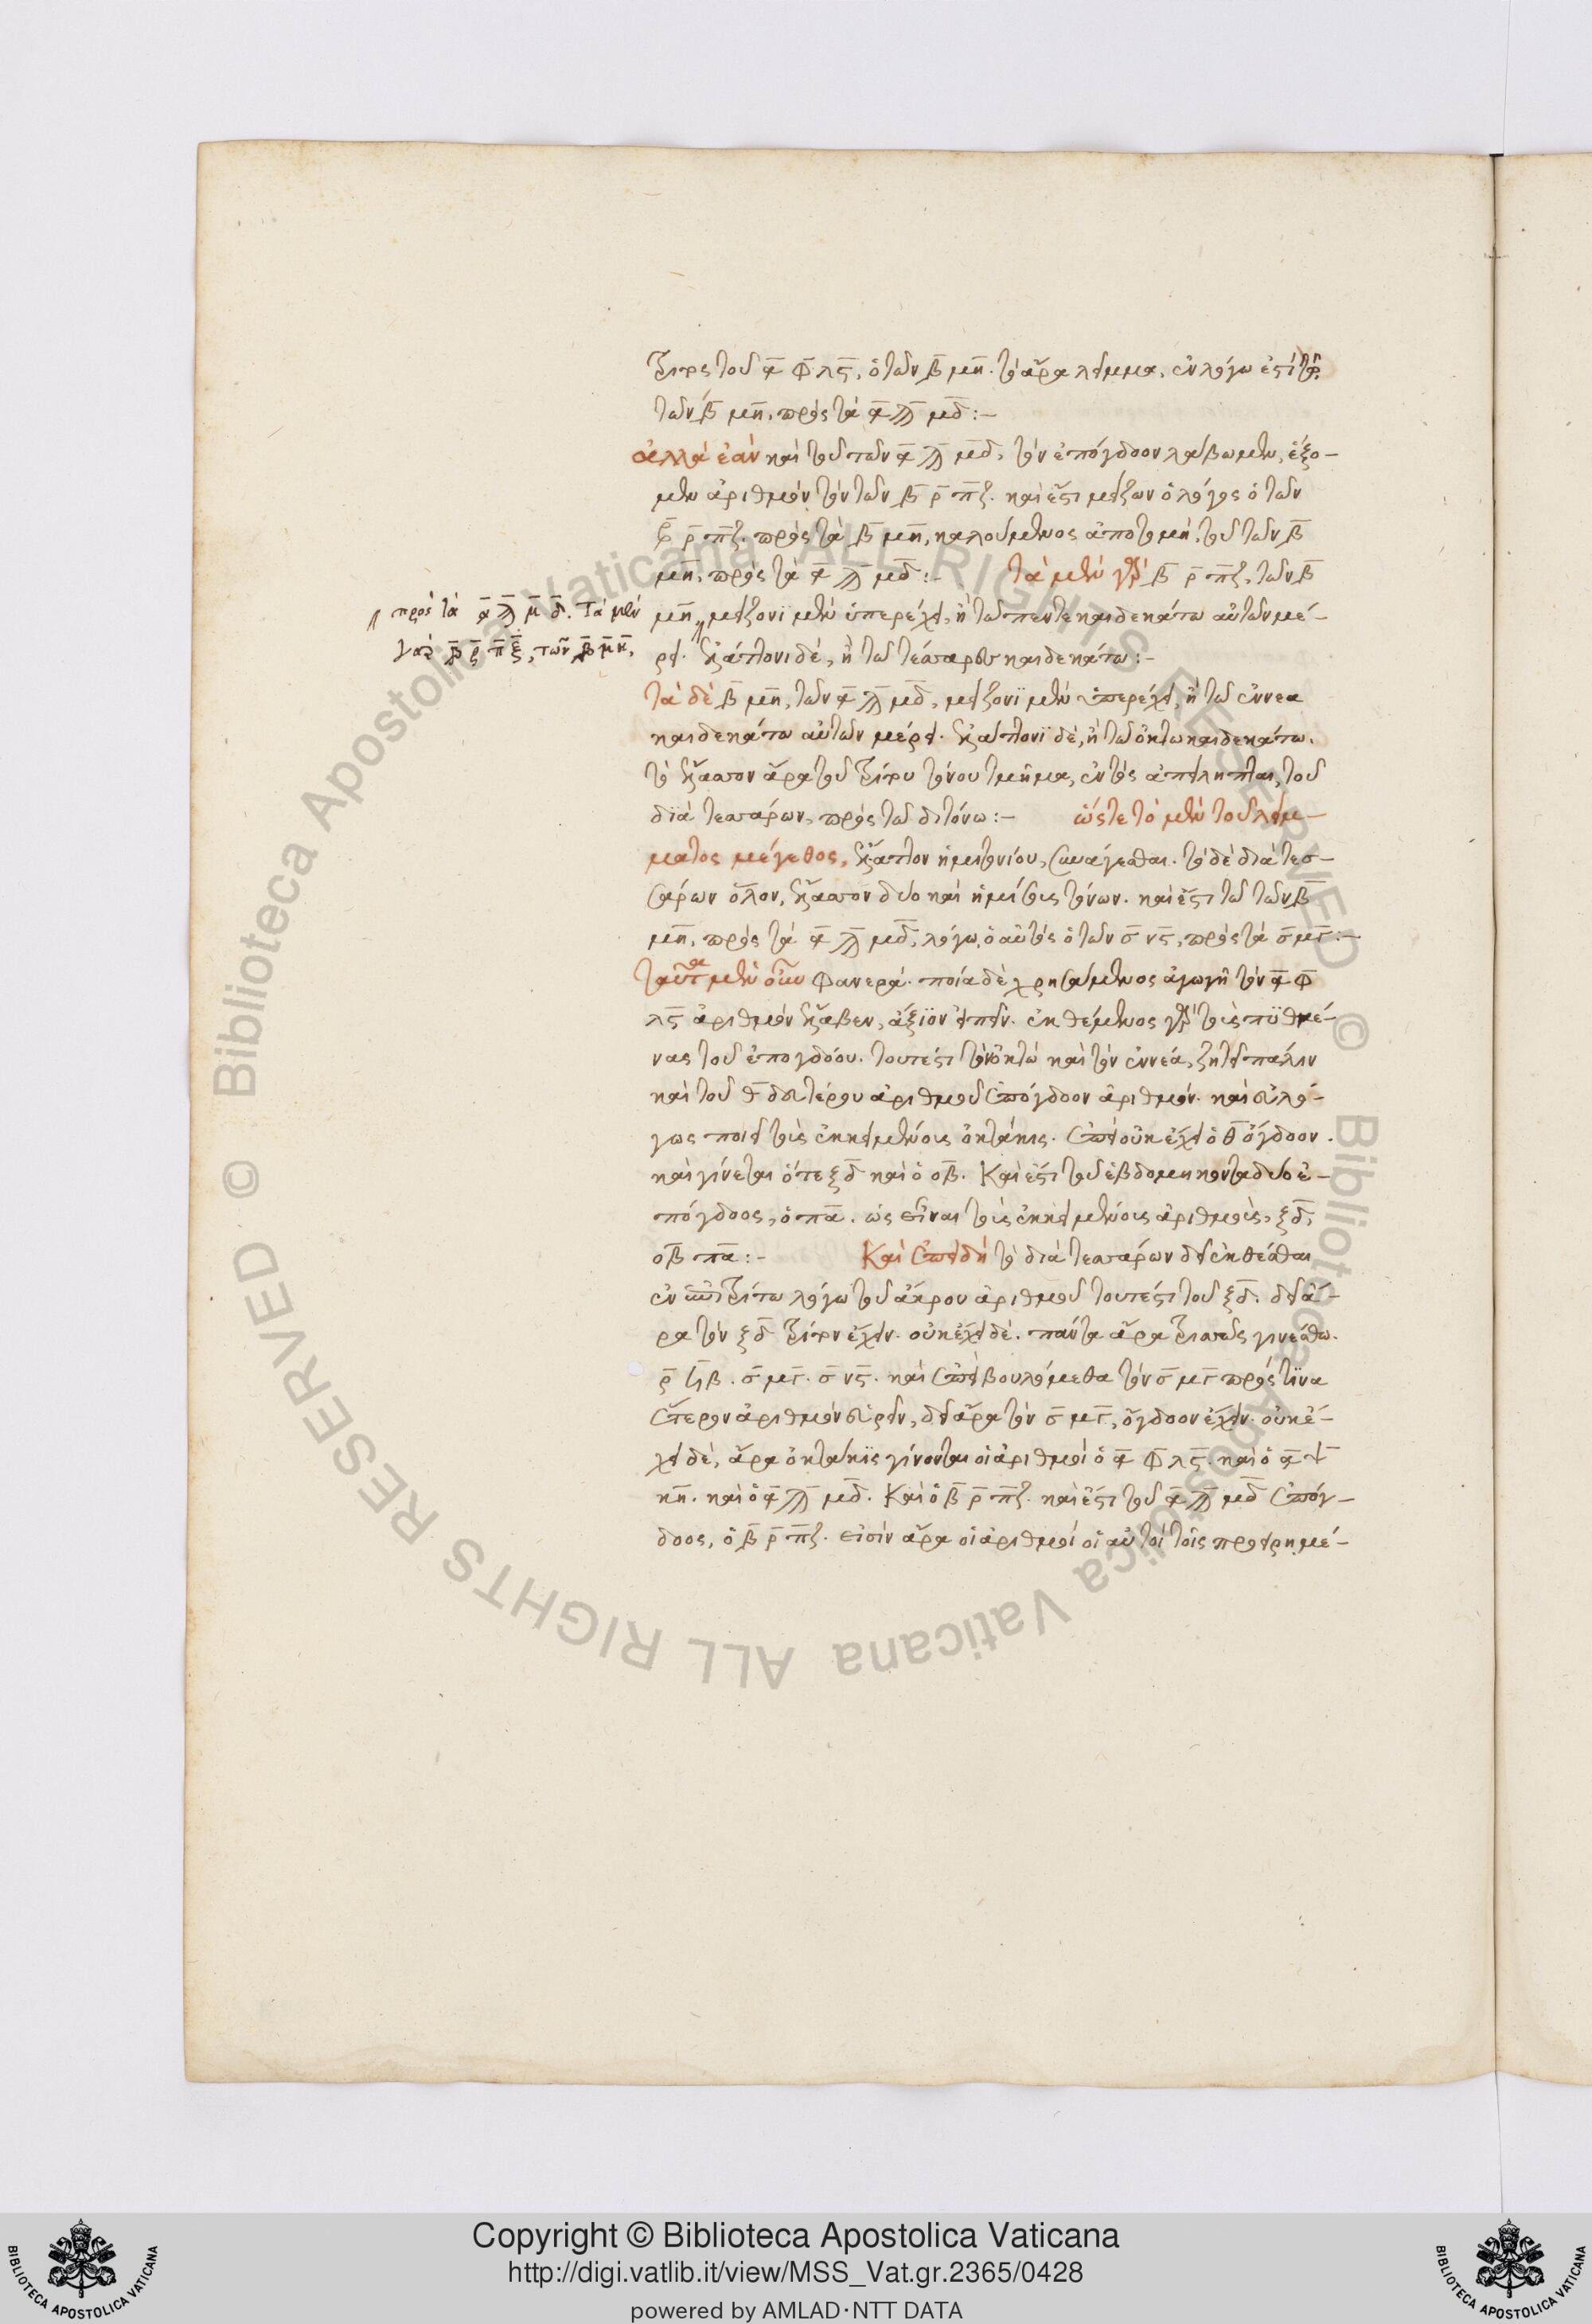 τρίτος τοῦ ͵α φ λς, ὁ τῶν ͵β μη. τὸ ἄρα λεῖμμα, ἐν λόγω ἐστὶ τῶ
τῶν ͵β μη, πρὸς τὰ ͵α ϡ μδ :-
ἀλλὰ ἐὰν καὶ τοῦ τῶν ͵α ϡ μδ, τὸν ἐπόγδοον λάβωμεν, ἕξο-
μεν ἀριθμὸν τὸν τῶν ͵β ρ πζ. καὶ ἔστι μείζων ὁ λόγος ὁ τῶν
͵β ρ πζ. πρὸς τὰ ͵β μη, καλούμενος ἀποτομὴ, τοῦ τῶν ͵β
μη, πρὸς τὰ ͵α ϡ μδ :- τὰ μὲν γὰρ ͵β ρ πζ, τῶν ͵β
πρὸς τὰ ͵α ϡ μ δ. τὰ μὲν
γὰρ ͵β ρ π ξ, τῶν ͵β μ η,
μη, μείζονι μὲν ὑπερέχει, ἢ τῶ πεντεκαιδεκάτω αὐτῶν μέ-
ρει. ἐλάττονι δέ, ἢ τῶ τεσσαρεσκαιδεκάτω :-
τὰ δὲ ͵β μη, τῶν ͵α ϡ μδ, μείζονι μὲν ὑπερέχει, ἢ τῶ ἐννεα
καιδεκάτω αὐτῶν μέρει. ἐλάττονι δέ, ἢ τῶ ὀκτωκαιδεκάτω.
τὸ ἔλασσον ἄρα τοῦ τρίτου τόνου τμῆμα, ἐντὸς ἀπείληπται, τοῦ
διὰ τεσσάρων, πρὸς τῶ διτόνω :- ὥστε τὸ μὲν τοῦ λείμ-
ματος μέγεθος, ἔλαττον ἡμιτονίου, συνάγεσθαι. τὸ δὲ διὰ τεσ-
σάρων ὅλον, ἔλασσον δύο καὶ ἡμίσους τόνων. καὶ ἔστι τῶ τῶν ͵β
μη, πρὸς τὰ ͵α ϡ μδ, λόγω, ὁ αὐτὸς ὁ τῶν σ νς, πρὸς τὰ σ μγ :-
ταῦτα μὲν οὖν φανερά. ποία δὲ χρησάμενος ἀγωγῆ τὸν ͵α φ
λς ἀριθμὸν ἔλαβεν, ἄξιον εἰπεῖν. ἐκθέμενος γὰρ τοὺς πυθμέ-
νας τοῦ ἐπογδόου. τουτέστι τὸν ὀκτὼ καὶ τὸν ἐννέα, ζητεῖ πάλιν
καὶ τοῦ θ δευτέρου ἀριθμοῦ ἐπόγδοον ἀριθμόν. καὶ εὐλό-
γως ποιεῖ τοὺς ἐκκειμένους ὀκτάκις. ἐπεὶ οὐκ ἔχει ὁ θ ὄγδοον.
καὶ γίνεται ὅ τε ξδ καὶ ὁ οβ. καὶ ἔστι τοῦ ἑβδομηκονταδύο ἐ-
πόγδοος, ὁ πα. ὡς εἶναι τοὺς ἐκκειμένους ἀριθμοὺς, ξδ,
οβ πα :- καὶ ἐπειδὴ τὸ διὰ τεσσάρων δεῖ ἐκθέσθαι
ἐν ἐπιτρίτω λόγω τοῦ ἄκρου ἀριθμοῦ τουτέστι τοῦ ξδ. δεῖ ἄ-
ρα τὸν ξδ τρίτον ἔχειν. οὐκ ἔχει δέ. πάντα ἄρα τρισσῶς γινέσθω.
ρ ϟβ. σ μγ. σ νς. καὶ ἐπεὶ βουλόμεθα τὸν σ μγ πρός τινα
ἕτερον ἀριθμὸν εὑρεῖν, δεῖ ἄρα τὸν σ μγ, ὄγδοον ἔχειν. οὐκ ἔ-
χει δέ, ἄρα ὀκτάκις γίνονται οἱ ἀριθμοὶ ὁ ͵α φ λς. καὶ ὁ ͵α ψ
κη. καὶ ὁ ͵α ϡ μδ. καὶ ὁ ͵β ρ πζ. καὶ ἔστι τοῦ ͵α ϡ μδ ἐπόγ-
δοος, ὁ ͵β ρ πζ. εἰσὶν ἄρα οἱ ἀριθμοὶ οἱ αὐτοὶ τοῖς προειρημέ-
Copyright © Biblioteca Apostolica Vaticana
http://digi.vatlib.it/view/MSS_Vat.gr.2365/0428
powered by AMLAD·NTT DATA
© Biblioteca Apostolica Vaticana ALL RIGHTS RESERVED
© Biblioteca Apostolica Vaticana ALL RIGHTS RESERVED
BIBLIOTECA APOSTOLICA VATICANA
BIBLIOTECA APOSTOLICA VATICANA